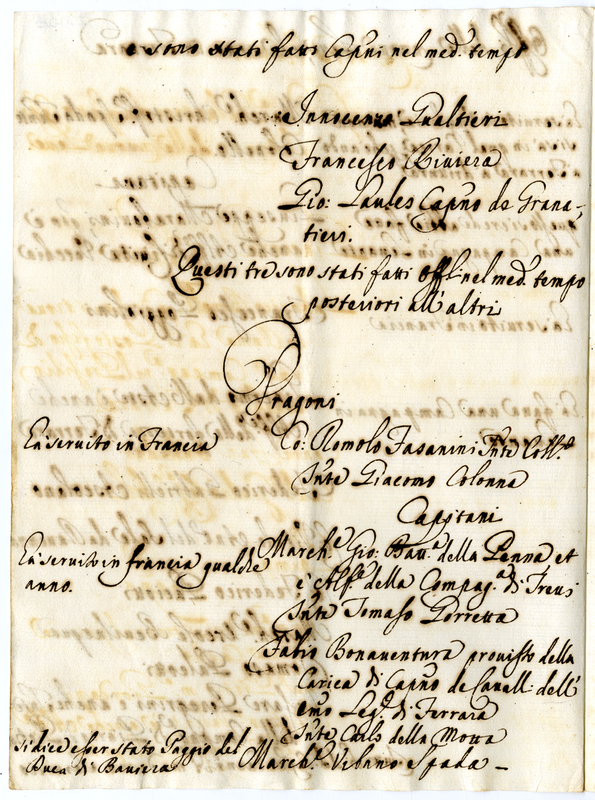 e sono stati fatti Cap.ni nel med.º tempo
Innocenzo Gualtieri
Francesco Riviera
Gio: Paules Cap.no de Grana-
tieri.
Questi tre sono stati fatti Off.li nel med.º tempo
posteriori all'altri
Dragoni
Ha servito in Francia
Co: Romolo Fasanini T'nte Coll.º
T'nte Giacomo Colonna
Capitani
Ha servito in francia qualche
anno.
March.e Gio: Bau.a della Penna et
è Alf.e della Compag.a di Trevi
T'nte Tomaso Porretta
Fabio Bonaventura provisto della
Carica di Cap.no de Cavall: dell'
emo Leg.º di Ferrara
T'nte Carlo della Motta
si dice esser stato Paggio del
Duca di Baviera
March.e Urbano Spada –